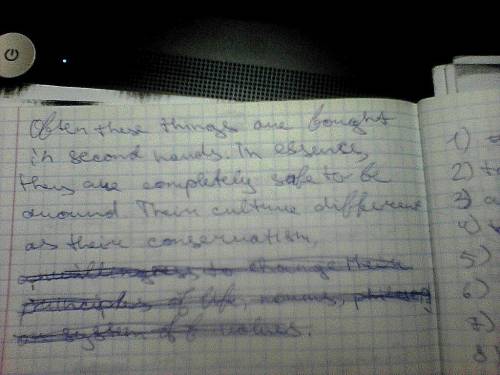 Often these things are bought
in second hands. In essence,
they are completely safe to be
around Their culture different
as their conservatism,
unwillingness to change their
principles of life, norms,
system of values.
1)
2)
3)
4)
5)
6)
7)
8